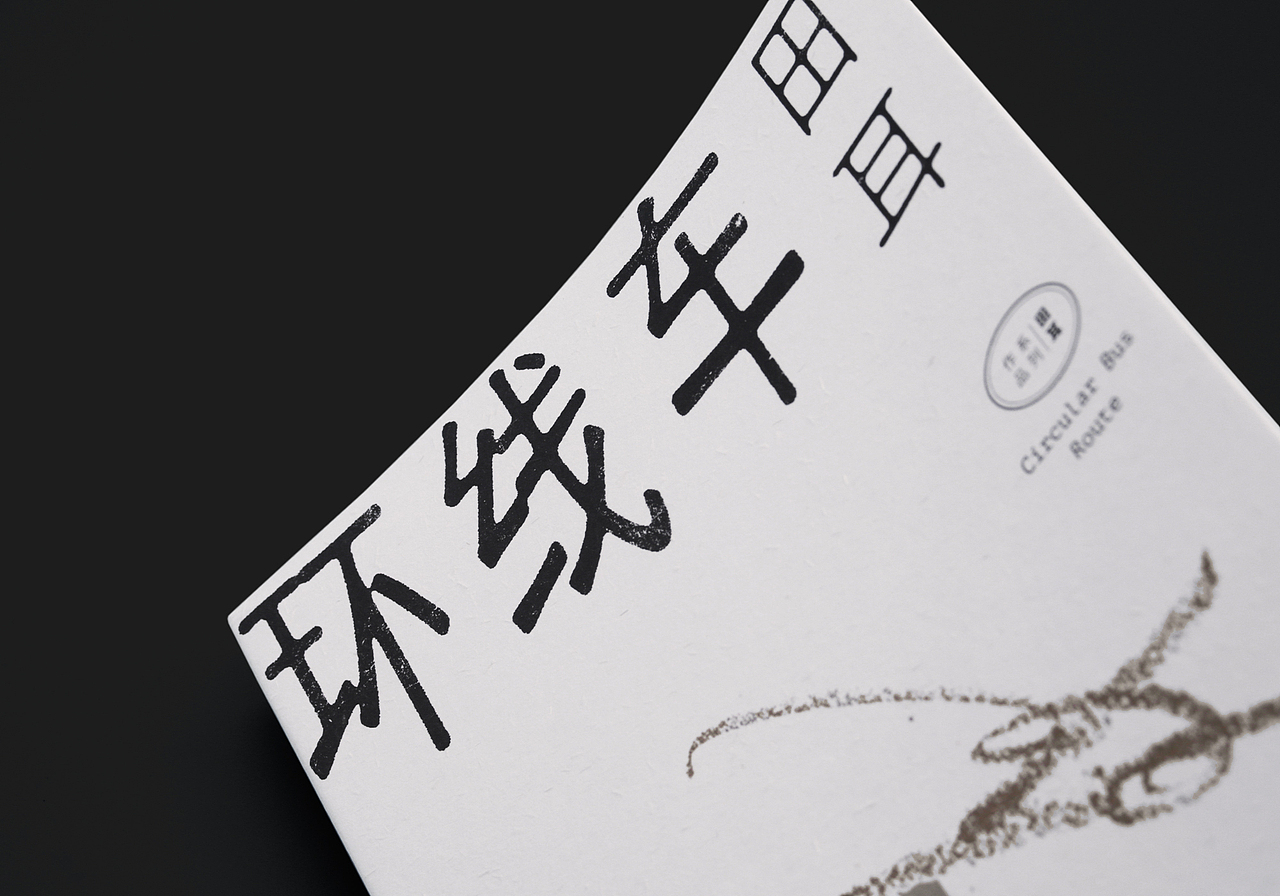 环线车
田耳
田耳
系列
作品
Circular Bus
Route